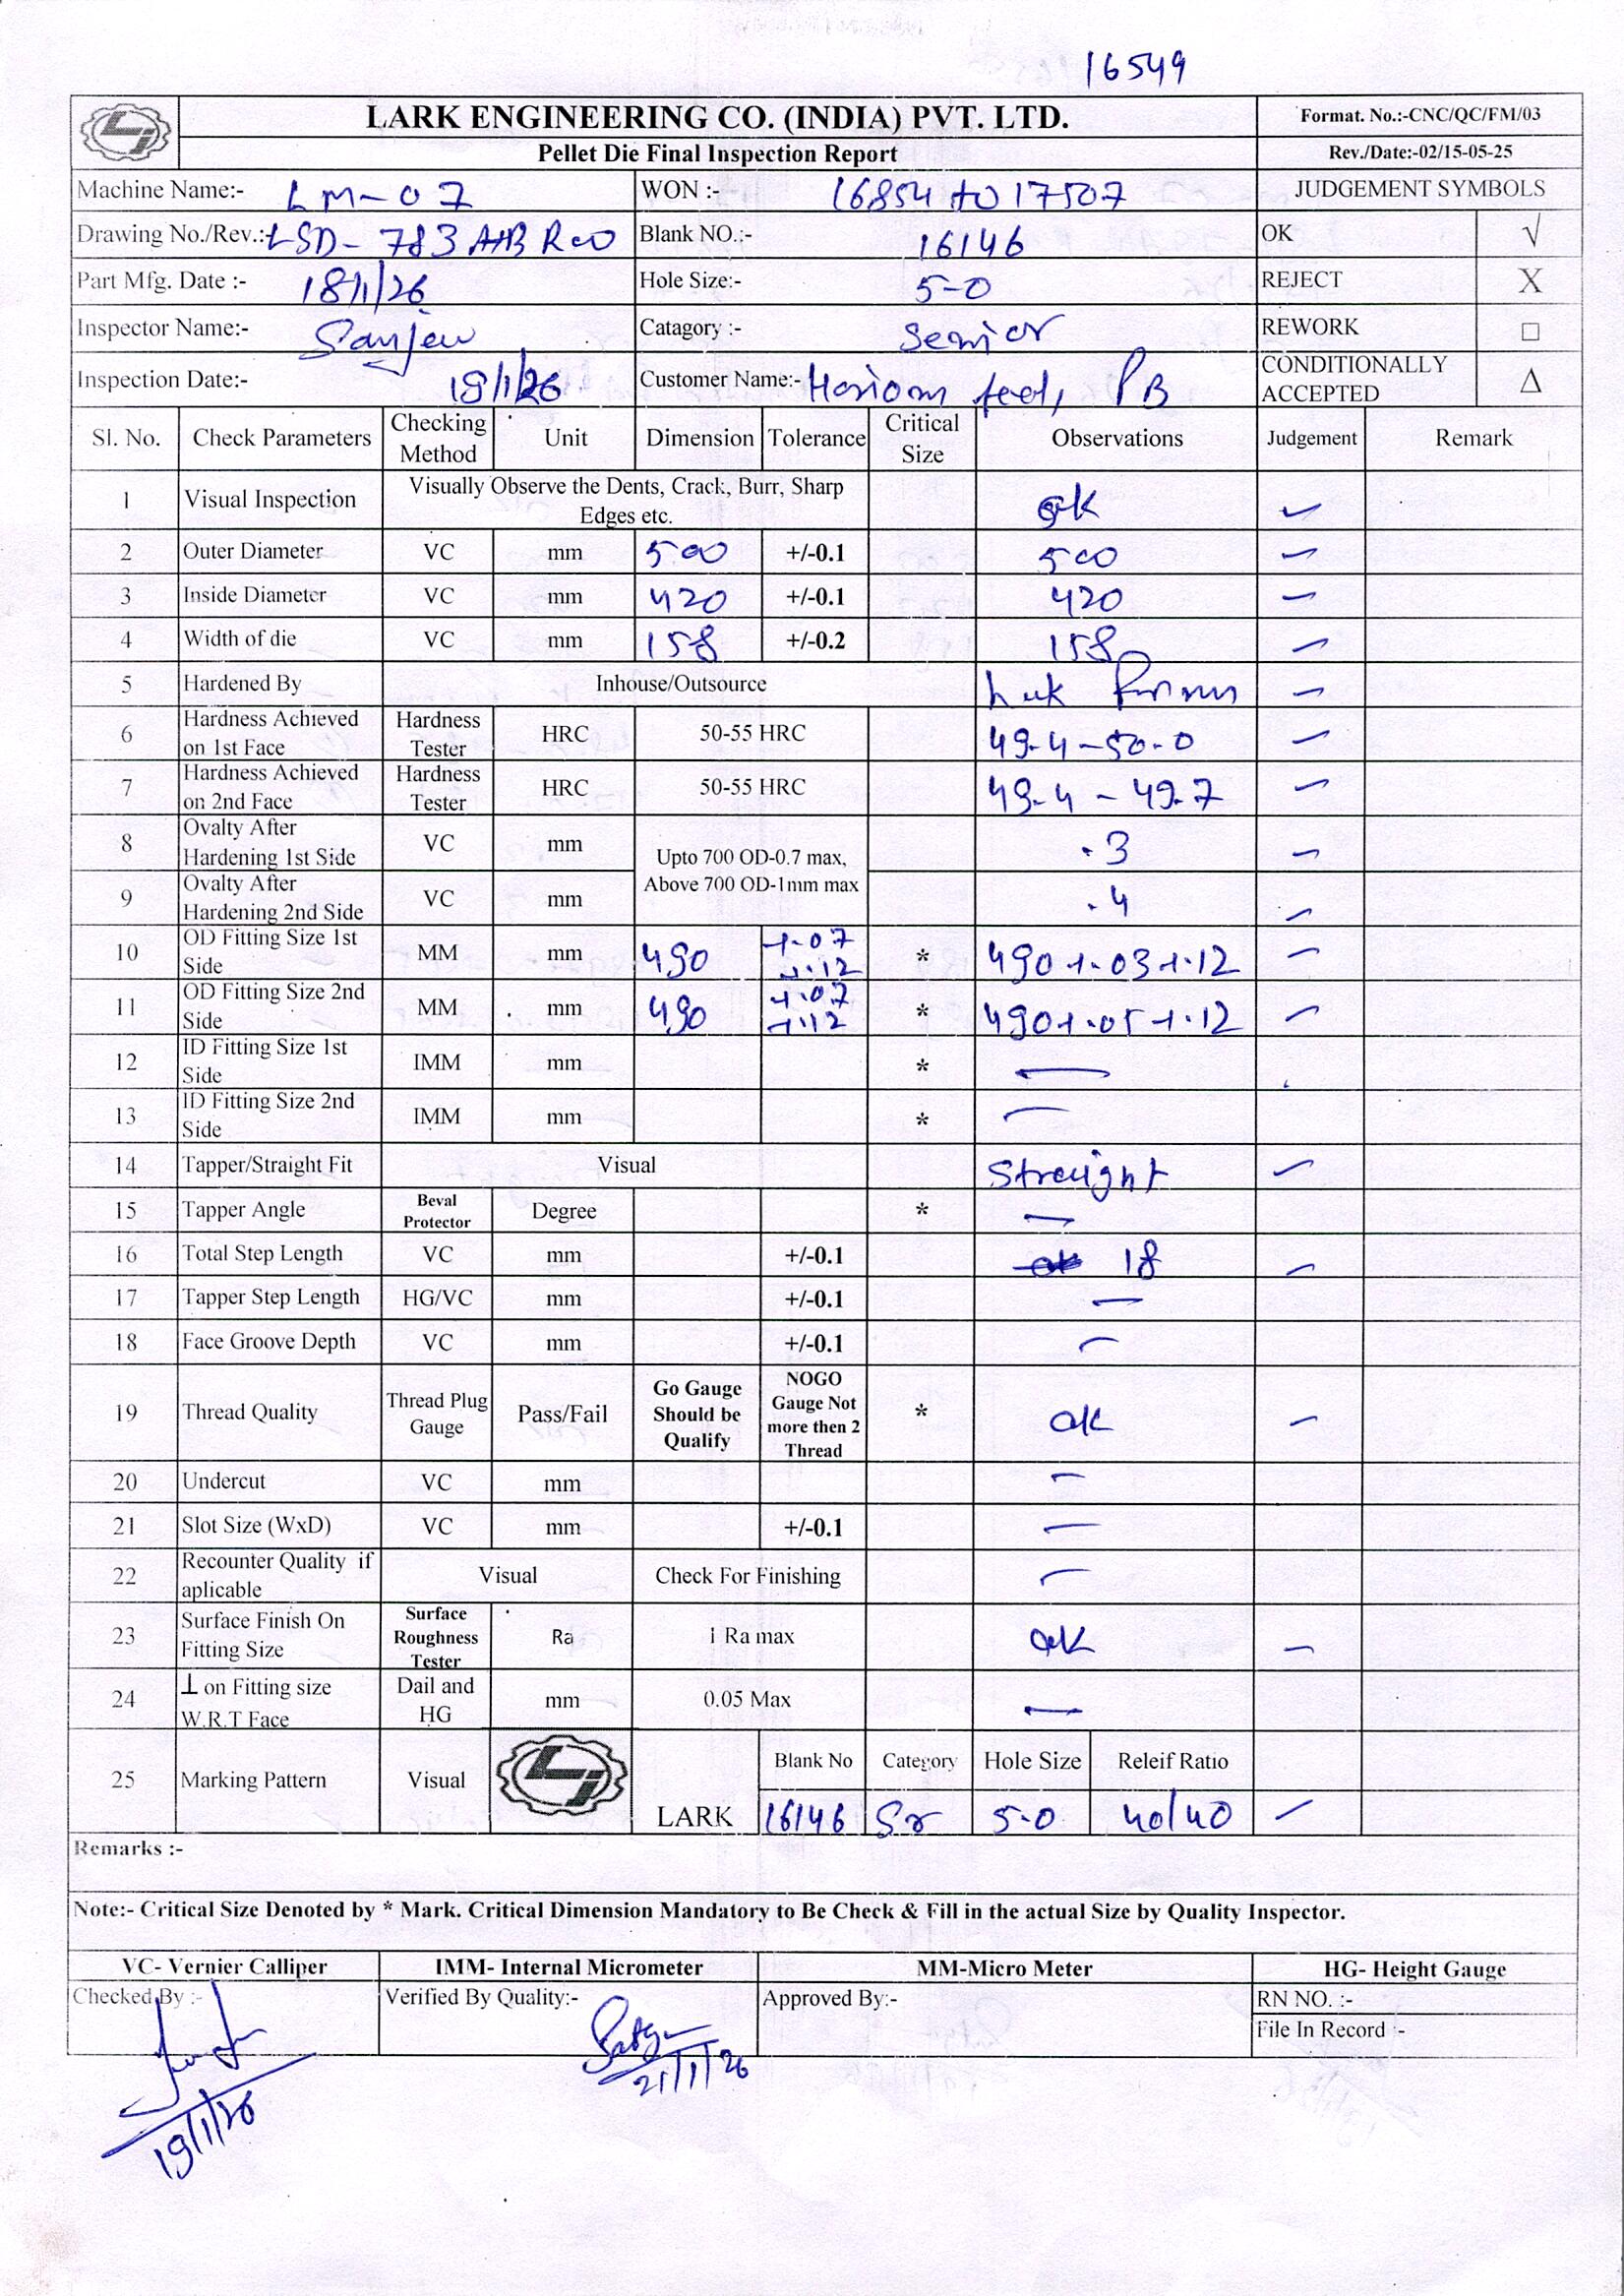 16549
LARK ENGINEERING CO. (INDIA) PVT. LTD. Format. No.:-CNC/QC/FM/03
Pellet Die Final Inspection Report Rev./Date:-02/15-05-25
Machine Name:- LM-07 WON :- 16854 to 17507 JUDGEMENT SYMBOLS
Drawing No./Rev.: LSD-783 A+B R00 Blank NO.:- 16146 OK √
Part Mfg. Date :- 18/1/26 Hole Size:- 5-0 REJECT X
Inspector Name:- Sanjeev Catagory :- Senior REWORK □
Inspection Date:- 19/1/26 Customer Name:- Hariom feed, PB CONDITIONALLY ACCEPTED Δ
Sl. No. Check Parameters Checking Method Unit Dimension Tolerance Critical Size Observations Judgement Remark
1 Visual Inspection Visually Observe the Dents, Crack, Burr, Sharp Edges etc. ok ✓
2 Outer Diameter VC mm 500 +/-0.1 500 ✓
3 Inside Diameter VC mm 420 +/-0.1 420 ✓
4 Width of die VC mm 158 +/-0.2 158 ✓
5 Hardened By Inhouse/Outsource ✓
6 Hardness Achieved on 1st Face Hardness Tester HRC 50-55 HRC 49.4-50.0 ✓
7 Hardness Achieved on 2nd Face Hardness Tester HRC 50-55 HRC 49.4 - 49.7 ✓
8 Ovalty After Hardening 1st Side VC mm Upto 700 OD-0.7 max, Above 700 OD-1mm max .3 ✓
9 Ovalty After Hardening 2nd Side VC mm .4 ✓
10 OD Fitting Size 1st Side MM mm 490 +.07 +.12 * 490 +.03 +.12 ✓
11 OD Fitting Size 2nd Side MM mm 490 +.07 +.12 * 490 +.05 +.12 ✓
12 ID Fitting Size 1st Side IMM mm * —
13 ID Fitting Size 2nd Side IMM mm * —
14 Tapper/Straight Fit Visual Streight ✓
15 Tapper Angle Beval Protector Degree * —
16 Total Step Length VC mm +/-0.1 18 ✓
17 Tapper Step Length HG/VC mm +/-0.1 —
18 Face Groove Depth VC mm +/-0.1 —
19 Thread Quality Thread Plug Gauge Pass/Fail Go Gauge Should be Qualify NOGO Gauge Not more then 2 Thread * ok ✓
20 Undercut VC mm —
21 Slot Size (WxD) VC mm +/-0.1 —
22 Recounter Quality if aplicable Visual Check For Finishing —
23 Surface Finish On Fitting Size Surface Roughness Tester Ra 1 Ra max ok ✓
24 ⊥ on Fitting size W.R.T Face Dail and HG mm 0.05 Max —
25 Marking Pattern Visual LARK Blank No Category Hole Size Releif Ratio
16146 Sr 5-0 40/40 ✓
Remarks :-
Note:- Critical Size Denoted by * Mark. Critical Dimension Mandatory to Be Check & Fill in the actual Size by Quality Inspector.
VC- Vernier Calliper IMM- Internal Micrometer MM-Micro Meter HG- Height Gauge
Checked By :- Verified By Quality:- Approved By:- RN NO. :-
File In Record :-
21/1/26
19/1/26